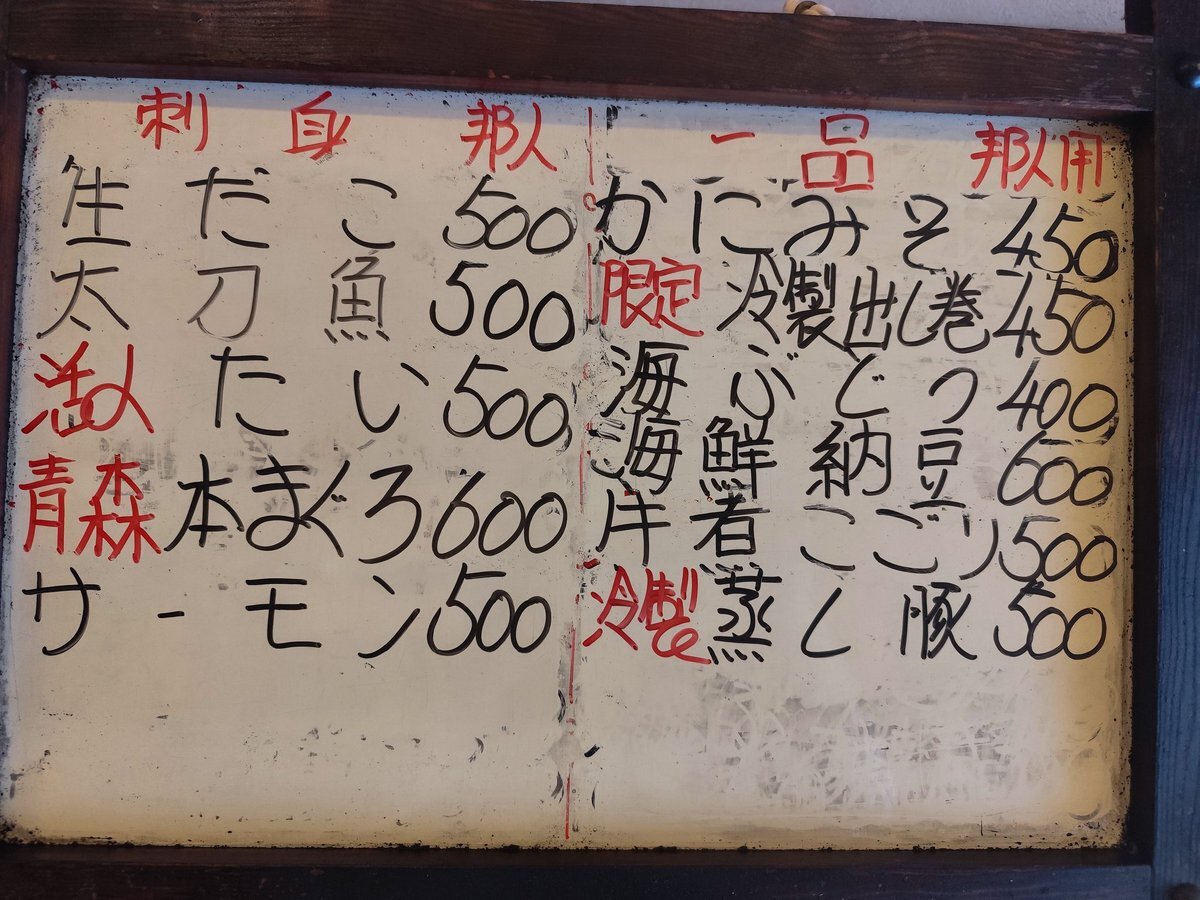 刺身 邦人
生だこ 500
太刀魚 500
活〆 たい 500
青森 本まぐろ 600
サーモン 500
一品 邦人用
かにみそ 450
限定 冷製出し巻 450
海ぶどう 400
海鮮納豆 600
牛煮こごり 500
冷製 蒸し豚 500